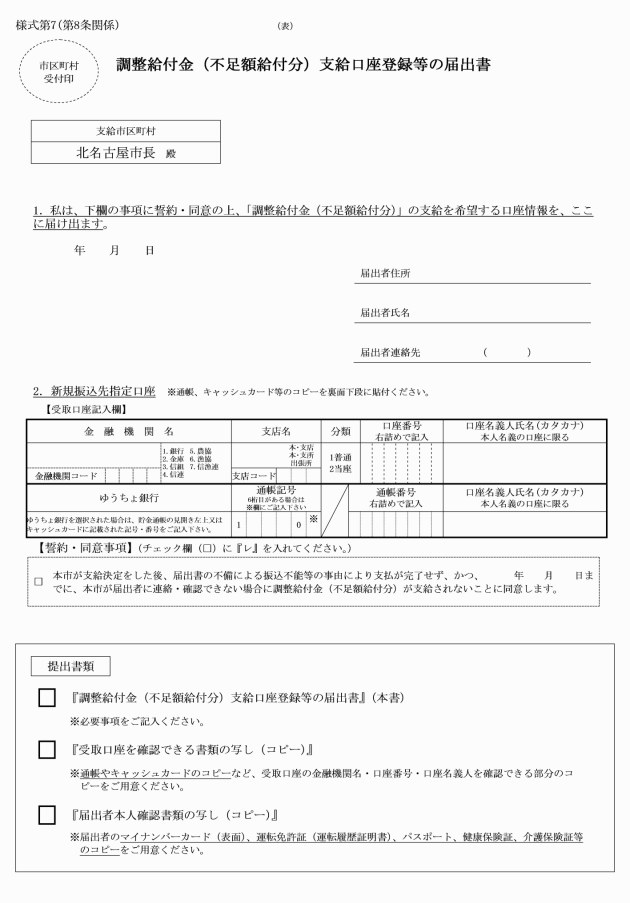 様式第7(第8条関係)
(表)
市区町村
受付印
調整給付金（不足額給付分）支給口座登録等の届出書
支給市区町村
北名古屋市長 殿
1．私は、下欄の事項に誓約・同意の上、「調整給付金（不足額給付分）」の支給を希望する口座情報を、ここ
に届け出ます。
年 月 日
届出者住所
届出者氏名
届出者連絡先 ( )
2．新規振込先指定口座 ※通帳、キャッシュカード等のコピーを裏面下段に貼付ください。
【受取口座記入欄】
金 融 機 関 名
支店名
分類
口座番号
右詰めで記入
口座名義人氏名(カタカナ)
本人名義の口座に限る
1.銀行 5.農協
2.金庫 6.漁協
3.信組 7.信漁連
4.信連
本・支店
本・支所
出張所
1普通
2当座
金融機関コード
支店コード
ゆうちょ銀行
通帳記号
6桁目がある場合は
※欄にご記入下さい
通帳番号
右詰めで記入
口座名義人氏名(カタカナ)
本人名義の口座に限る
ゆうちょ銀行を選択された場合は、貯金通帳の見開き左上又は
キャッシュカードに記載された記号・番号をご記入下さい。
1 0 ※
【誓約・同意事項】(チェック欄（□）に『レ』を入れてください。)
□ 本市が支給決定をした後、届出書の不備による振込不能等の事由により支払が完了せず、かつ、 年 月 日ま
でに、本市が届出者に連絡・確認できない場合に調整給付金（不足額給付分）が支給されないことに同意します。
提出書類
『調整給付金（不足額給付分）支給口座登録等の届出書』(本書)
※必要事項をご記入ください。
『受取口座を確認できる書類の写し（コピー）』
※通帳やキャッシュカードのコピーなど、受取口座の金融機関名・口座番号・口座名義人を確認できる部分のコ
ピーをご用意ください。
『届出者本人確認書類の写し（コピー）』
※届出者のマイナンバーカード（表面）、運転免許証（運転履歴証明書）、パスポート、健康保険証、介護保険証等
のコピーをご用意ください。